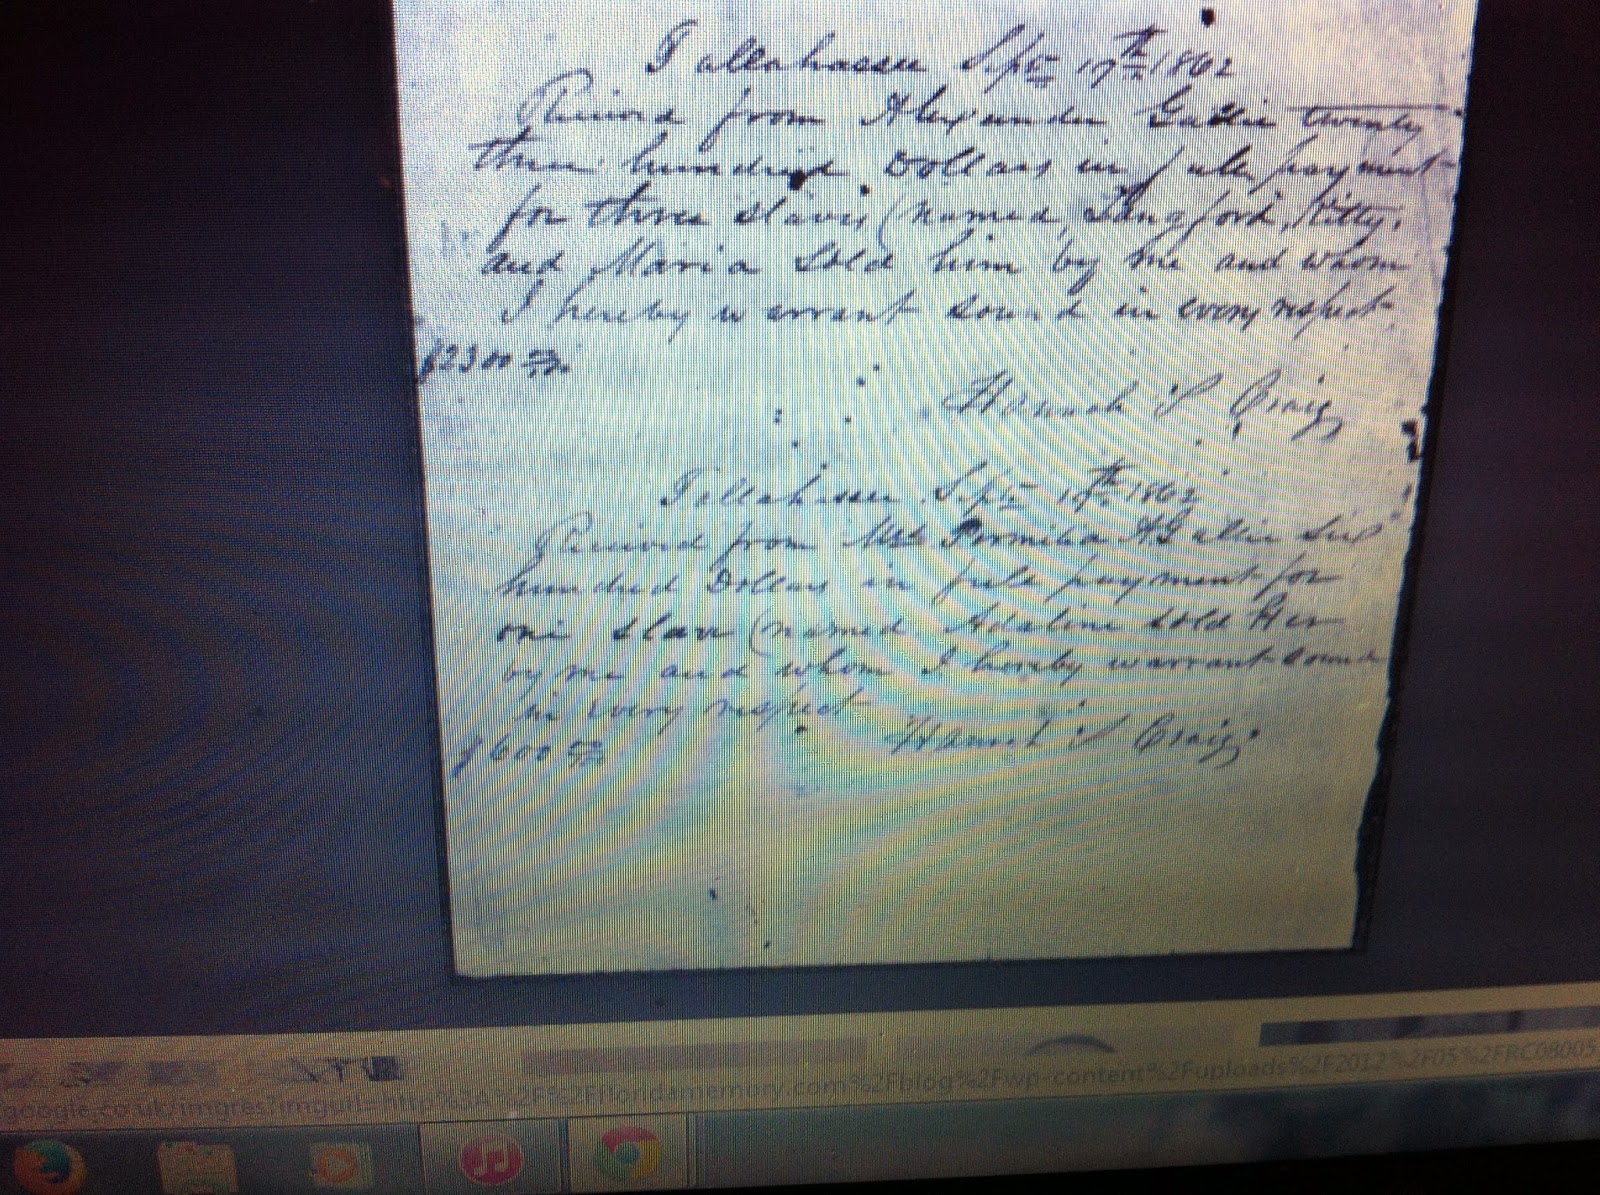 Tallahassee Sept 17th 1862
Received from Alexander Gallie twenty
three hundred Dollars in full payment
for three slaves (named Langford, Kitty,
and Maria sold him by me and whom
I hereby warrant sound in every respect
$2300
Hannah S Craig
Tallahassee Sept 17th 1862
Received from Mrs A Gallie Six
hundred Dollars in full payment for
one slave (named Adaline sold Her
by me and whom I hereby warrant sound
in every respect
$600
Hannah S Craig
google.co.uk/imgres?imgurl=http%3A%2F%2Ffloridamemory.com%2Fblog%2Fwp-content%2Fuploads%2F2012%2F05%2FRC08005